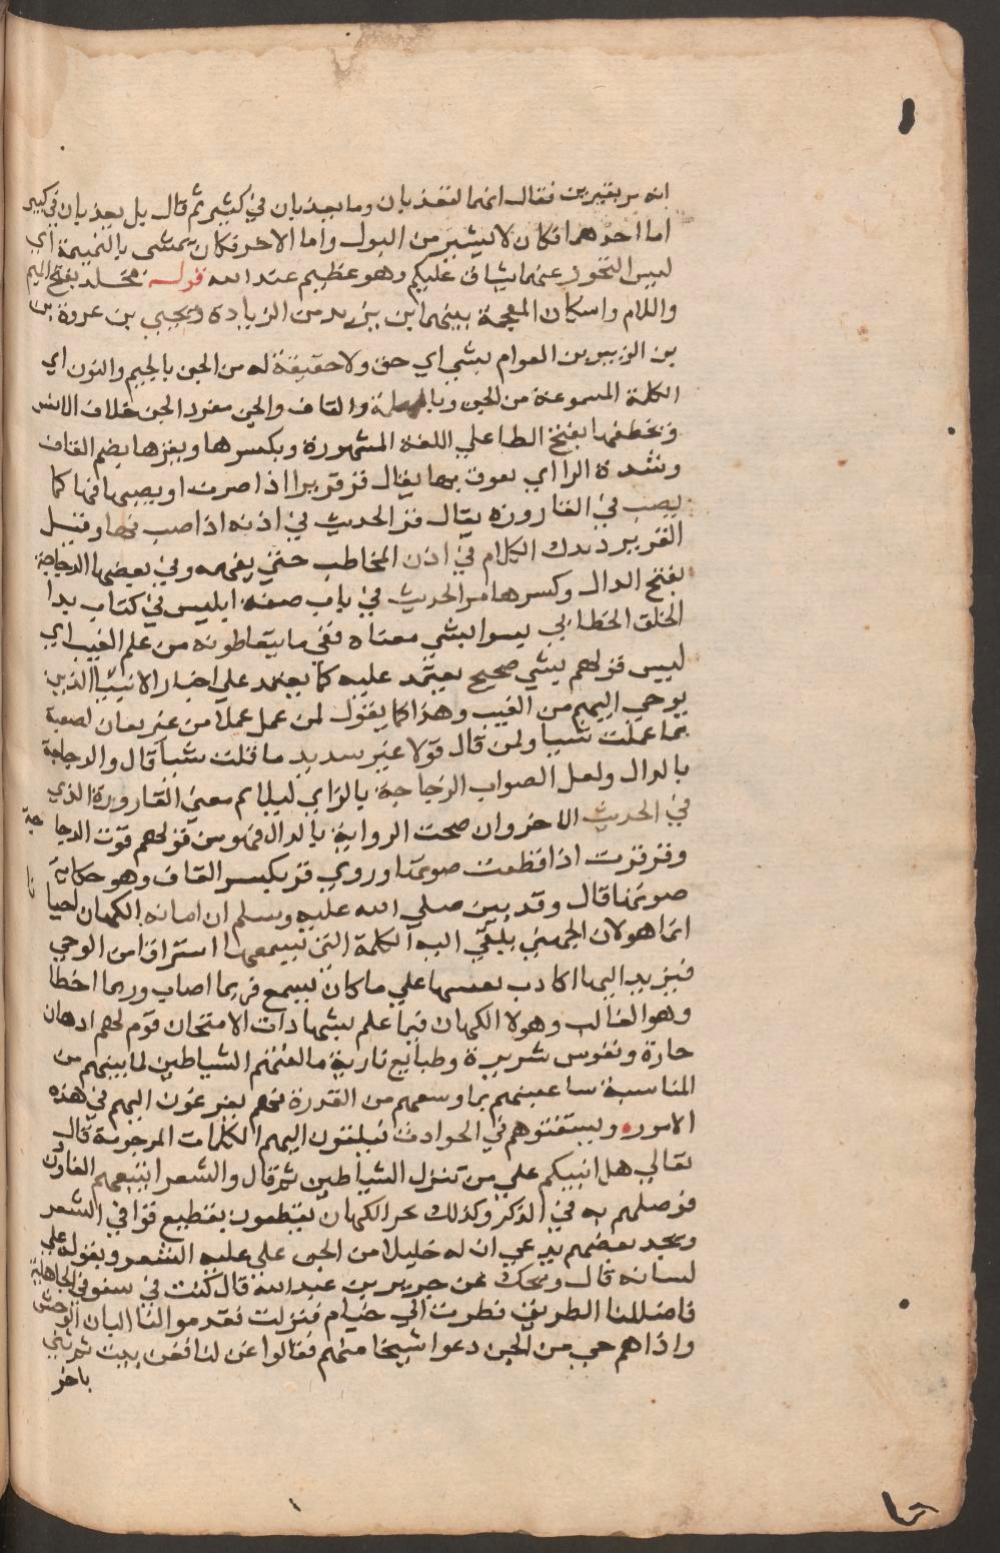 انه مر بقبرين فقال انهما ليعذبان وما يعذبان في كبير ثم قال بل يعذبان في كبير
اما احدهما فكان لا يستبرئ من البول واما الاخر فكان يمشي بالنميمة اي
ليس التحرز عنهما بشاق عليكم وهو عظيم عند الله قوله مخلد بفتح الميم
واللام واسكان المعجمة بينهما ابن يزيد من الزيادة ويحيي بن عروة بن
بن الزبير بن العوام بشي اي حق ولا حقيقة له من الجن بالجيم والنون اي
الكلمة المسموعة من الجن وبالمهملة والقاف والجن مفرد الجن خلاف الانس
ويخطفها بفتح الطا علي اللغة المشهورة وبكسرها ويقرها بضم القاف
وشدة الرا اي يصوت بها يقال قر قريرا اذا صوت او يصبها فيها كما
يصب في القارورة يقال قر الحديث في اذنه اذا صب فيها وقيل
القر ترديدك الكلام في اذن المخاطب حتي يفهمه وفي بعضها الدجاجة
بفتح الدال وكسرها مر الحديث في باب صفة ابليس في كتاب بدا
الخلق الخطابي ليسوا بشي معناه نفي ما يتعاطونه من علم الغيب اي
ليس قولهم بشي صحيح يعتمد عليه كما يعتمد علي اخبار الانبيا الذين
يوحي اليهم من الغيب وهذا كما يقول لمن عمل عملا من غير اتقان لصنعة
ما عملت شيا ولمن قال قولا غير سديد ما قلت شيا قال والدجاجة
بالدال ولعل الصواب الزجاجة بالزاي ليلايم معني القارورة الذي
في الحديث الاخر وان صحت الرواية بالدال فهو من قولهم قرت الدجاجة
وقرقرت اذا قطعت صوتها وروي قر بكسر القاف وهو حكاية
صوتها قال وقد بين صلي الله عليه وسلم ان اصابة الكهان احيانا
انما هو لان الجني يلقي اليه الكلمة التي يسمعها استراقا من الوحي
فيزيد اليها اكاذيب يقيسها علي ما كان يسمع فربما اصاب وربما اخطا
وهو الغالب وهولا الكهان فيما علم بشهادات الامتحان قوم لهم اذهان
حارة ونفوس شريرة وطبايع نارية فالفتهم الشياطين لما بينهم من
المناسبة ساعينهم بما وسعهم من القدرة فهم يفزعون اليهم في هذه
الامور ويستفتوهم في الحوادث فيلقنون اليهم الكلمات المرجومة قال
تعالي هل انبيكم علي من تنزل الشياطين ثم قال والشعرا يتبعهم الغاوون
فوصلهم به في الذكر وكذلك نجد الكهان يقطعون بتقطيع قوافي الشعر
ونجد بعضهم يدعي ان له خليلا من الجن علي عليه الشعر ويقوله علي
لسانه قال ويحك عن جرير بن عبد الله قال كنت في سفر في الجاهلية
فاضللنا الطريق فطرت الي خيام فنزلت فقدموا لنا البان الوحش
واذا هم حي من الجن دعوا شيخا منهم فقالوا غن لنا فغن ببيت ثم ثني
باخر